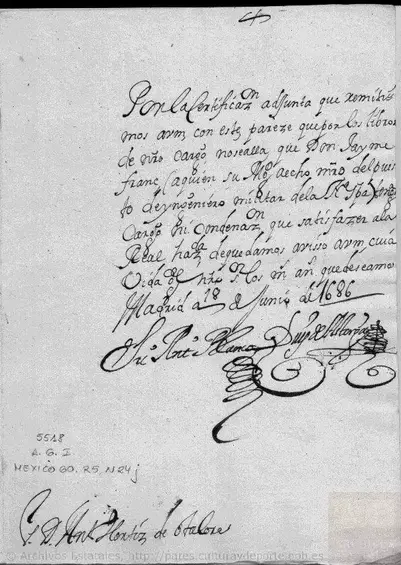 Por la Certificazon adjunta que remitire
mos a vm con este pareze que por los libros
de nro Cargo no se alla que Don Jayme
franc (a quien su Mgd a echo mrd del pues
to de yngeniero militar de la Na Spa)
Cargo ni Condenazon que satisfazer a la
Real hazda de que damos avisso a vm cuia
Vida gde nro Sr los ms as que deseamos
Madrid a 18 de Junio de 1686
5518
A. G. I
MEXICO 60. R5, N24 j
Sr D. Antº Hortiz de Otalora
© Archivos Estatales, http://pares.culturaydeporte.gob.es